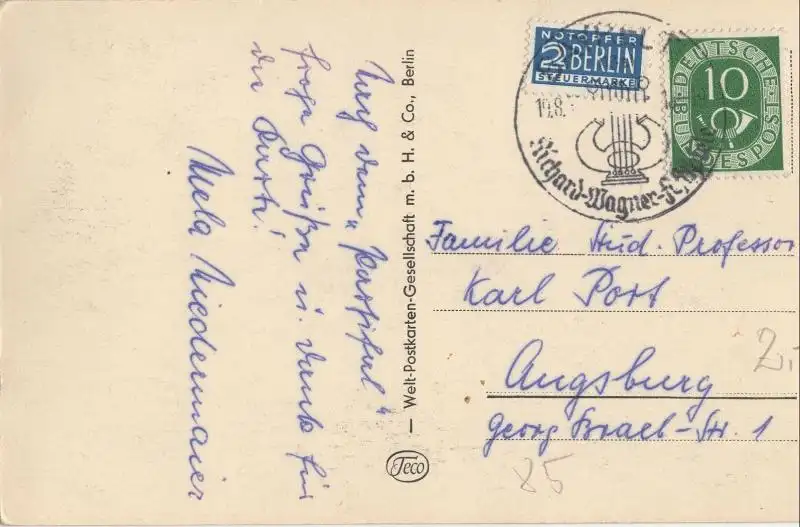 Nach dem „Parsifal“
frohe Grüße u. Dank für
die Karte!
Mela Niedermaier
— Welt-Postkarten-Gesellschaft m. b. H. & Co., Berlin
Teco
NOTOPFER
2 BERLIN
STEUERMARKE
19.8.
Richard-Wagner-
DEUTSCHE
10
BUNDESPOST
Familie Stud. Professor
Karl Port
Augsburg
Georg Brael-Str. 1
2,-
85